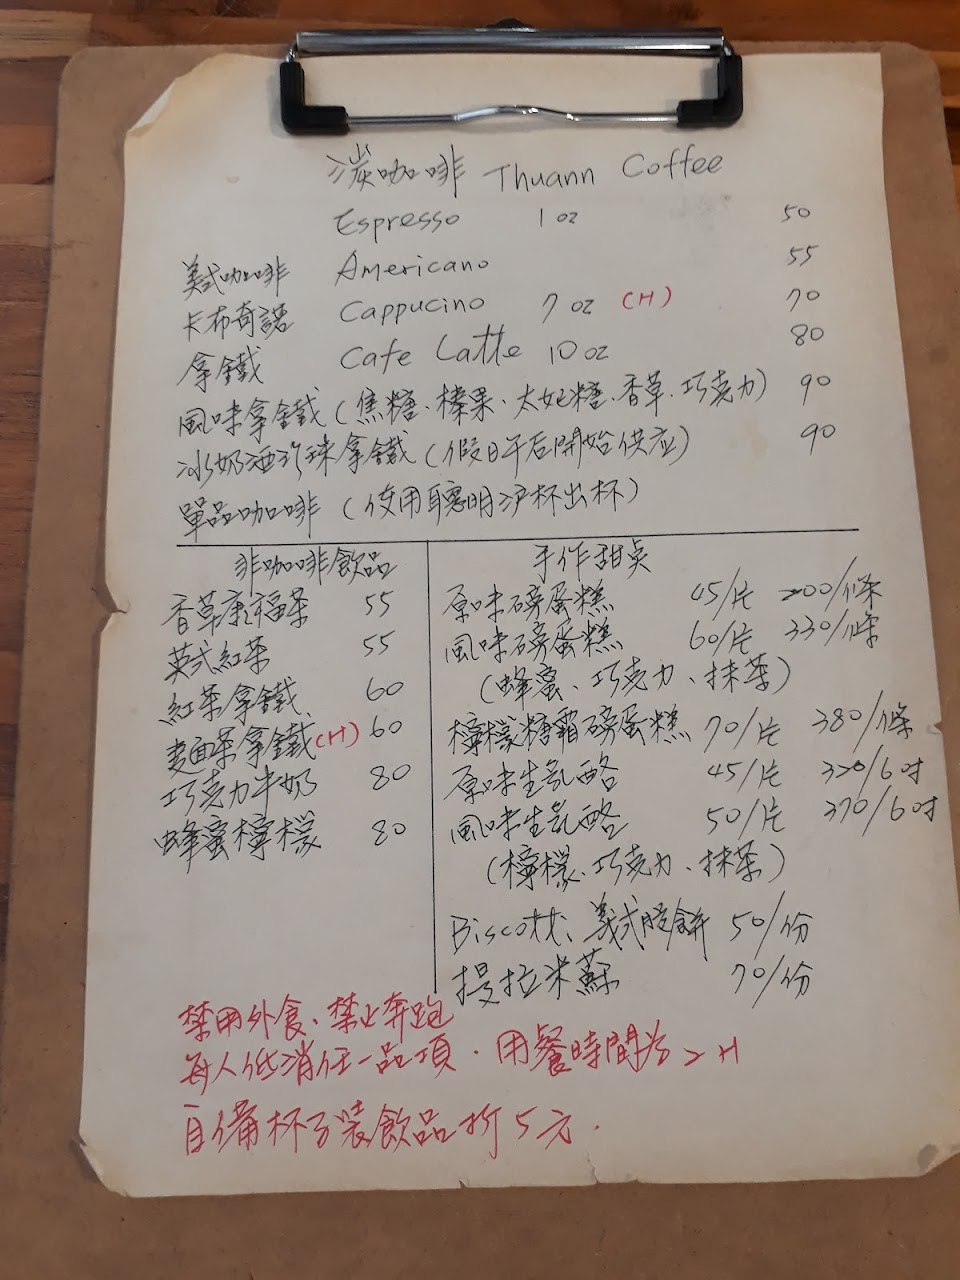 淡咖啡 Thuann Coffee
Espresso 1 oz 50
美式咖啡 Americano 55
卡布奇諾 Cappucino 7 oz (H) 70
拿鐵 Cafe Latte 10 oz 80
風味拿鐵(焦糖、榛果、太妃糖、香草、巧克力) 90
冰奶酒珍珠拿鐵(假日午后開始供应) 90
單品咖啡(使用聰明沪杯出杯)
非咖啡飲品
香草康福茶 55
英式紅茶 55
紅茶拿鐵 60
麵茶拿鐵(H) 60
巧克力牛奶 80
蜂蜜檸檬 80
手作甜点
原味磅蛋糕 45/片 200/條
風味磅蛋糕 60/片 330/條
(蜂蜜、巧克力、抹茶)
檸檬糖霜磅蛋糕 70/片 380/條
原味生乳酪 45/片 320/6吋
風味生乳酪 50/片 370/6吋
(檸檬、巧克力、抹茶)
Biscotti、義式脆餅 50/份
提拉米蘇 70/份
禁用外食、禁止奔跑
每人低消任一品項．用餐時間為2H
自備杯子裝飲品折5元．